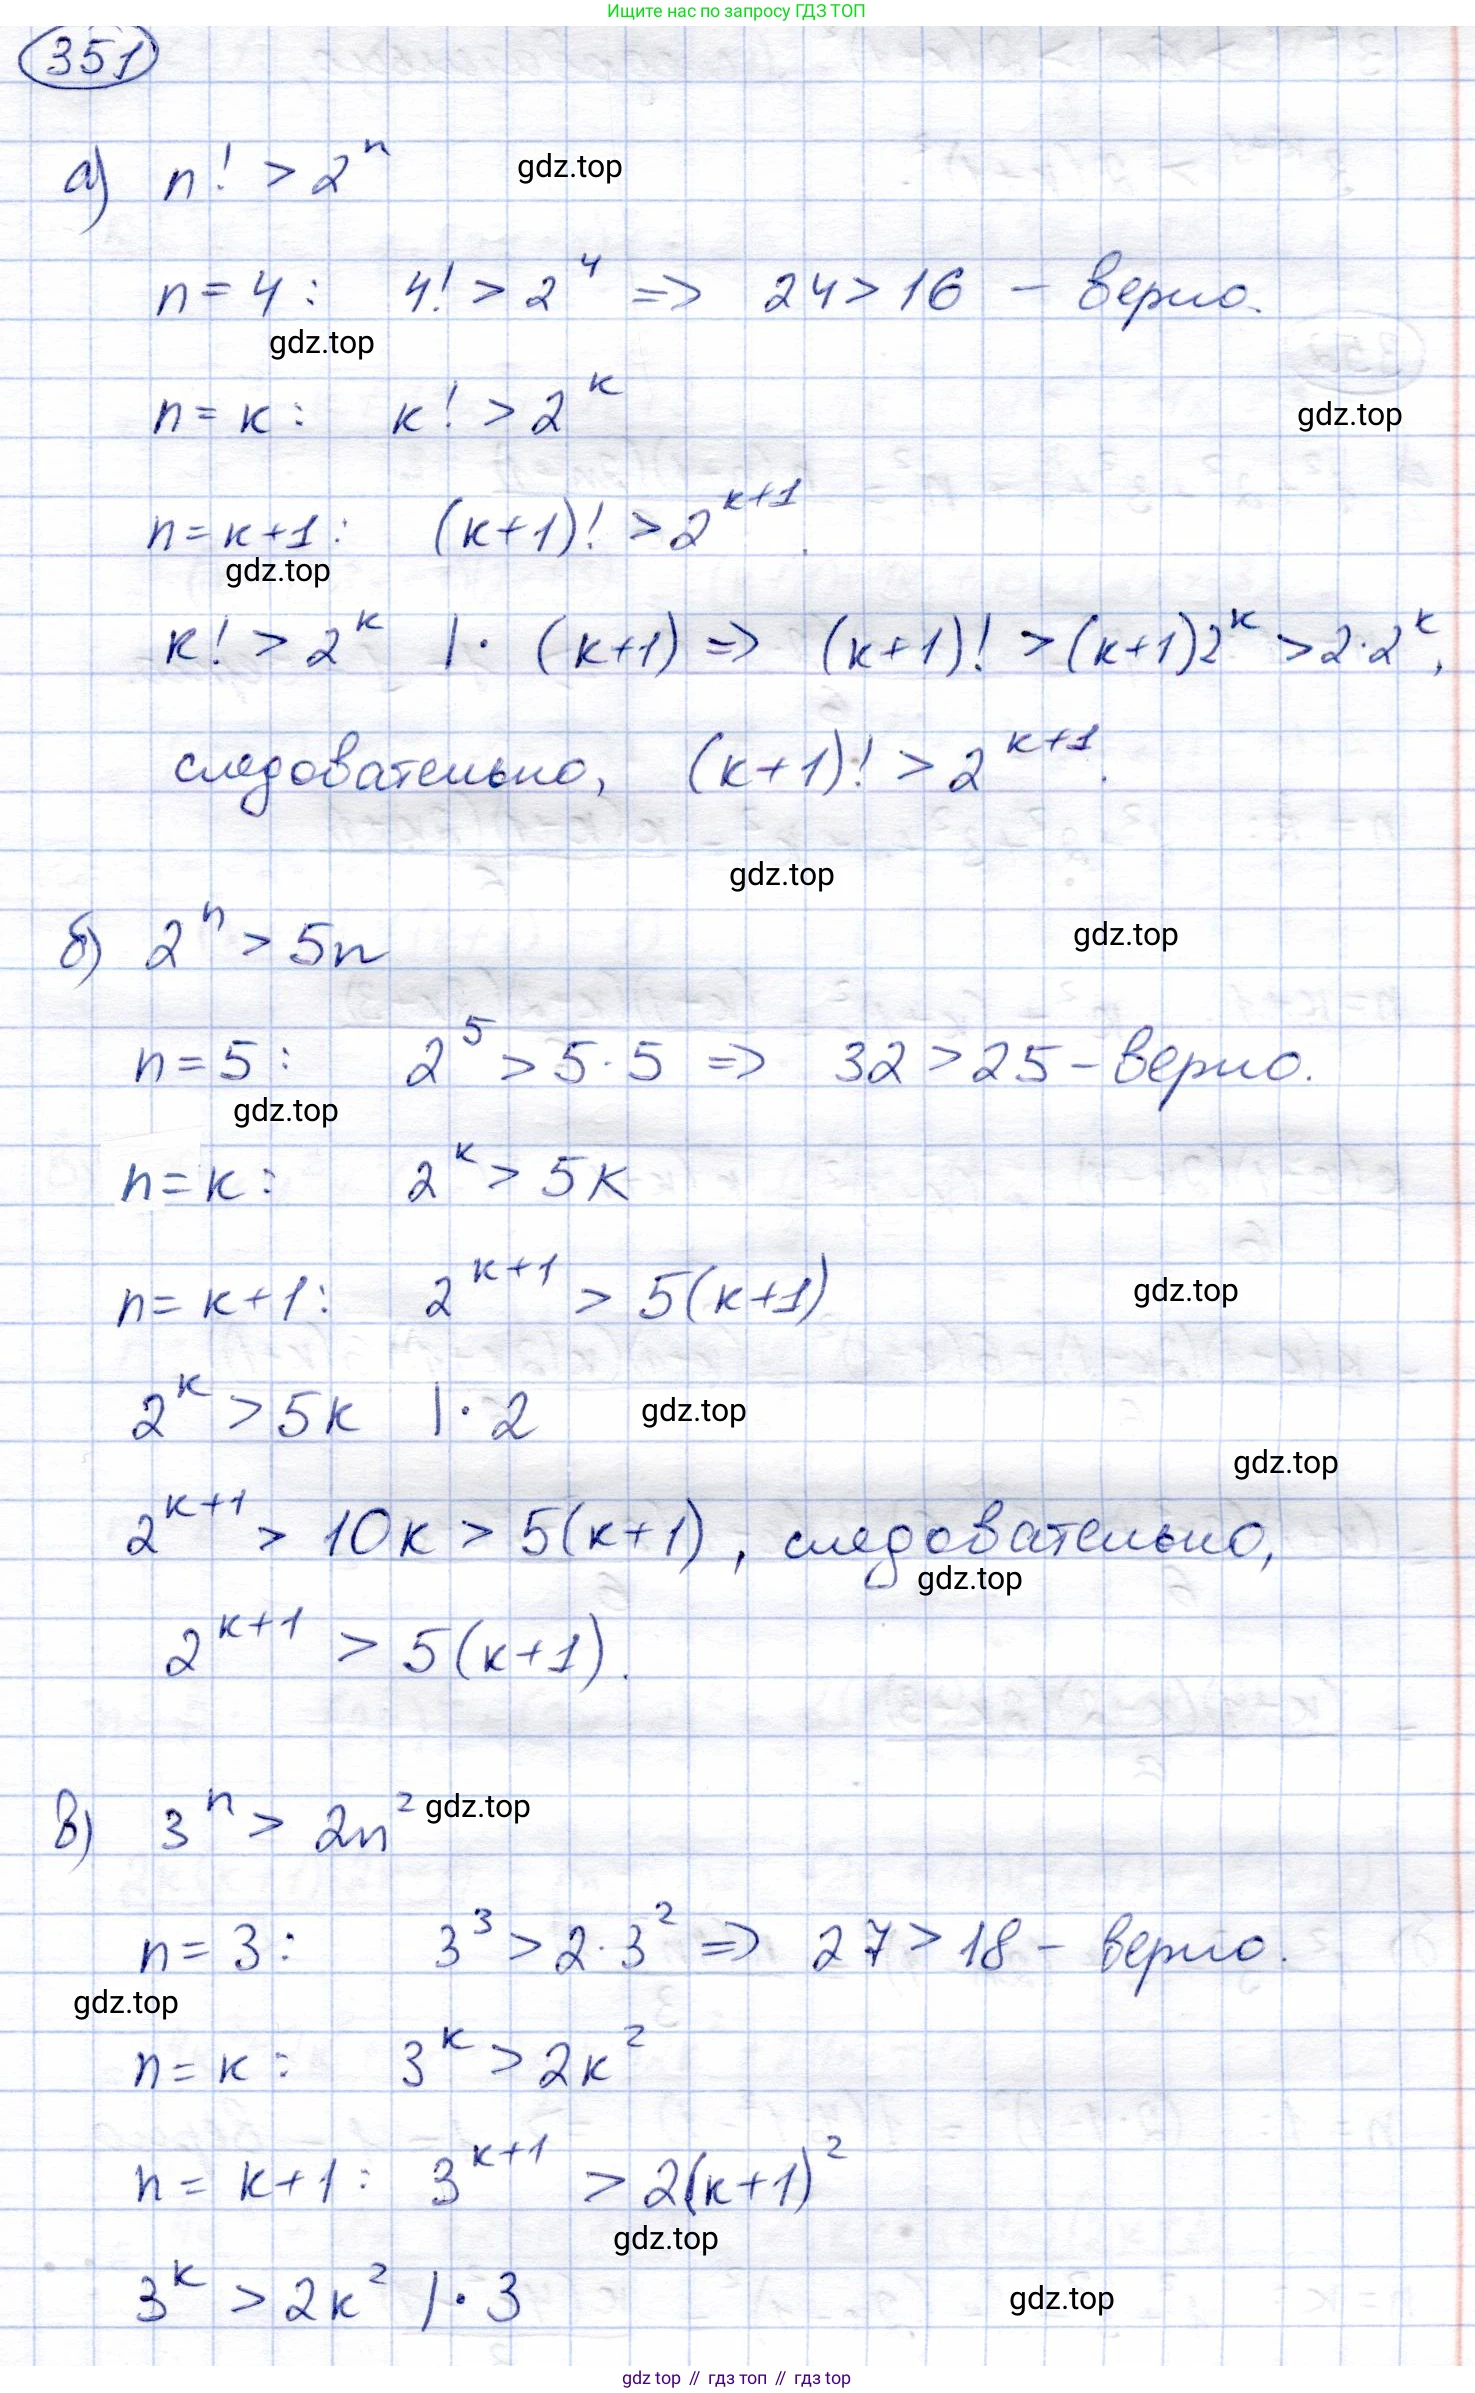 Ищите нас по запросу ГДЗ ТОП
351
а) n! > 2^n
gdz.top
n = 4 : 4! > 2^4 => 24 > 16 – верно.
gdz.top
n = к : к! > 2^к
gdz.top
n = к+1 : (к+1)! > 2^(к+1).
gdz.top
к! > 2^к | · (к+1) => (к+1)! > (к+1)2^к > 2·2^к,
следовательно, (к+1)! > 2^(к+1).
gdz.top
б) 2^n > 5n
gdz.top
n = 5 : 2^5 > 5·5 => 32 > 25 – верно.
gdz.top
n = к : 2^к > 5к
n = к+1 : 2^(к+1) > 5(к+1)
gdz.top
2^к > 5к | · 2
gdz.top
gdz.top
2^(к+1) > 10к > 5(к+1), следовательно,
gdz.top
2^(к+1) > 5(к+1).
в) 3^n > 2n²
gdz.top
n = 3 : 3³ > 2·3² => 27 > 18 – верно.
gdz.top
n = к : 3^к > 2к²
n = к+1 : 3^(к+1) > 2(к+1)²
gdz.top
3^к > 2к² | · 3
gdz.top
gdz top // гдз топ // гдз top